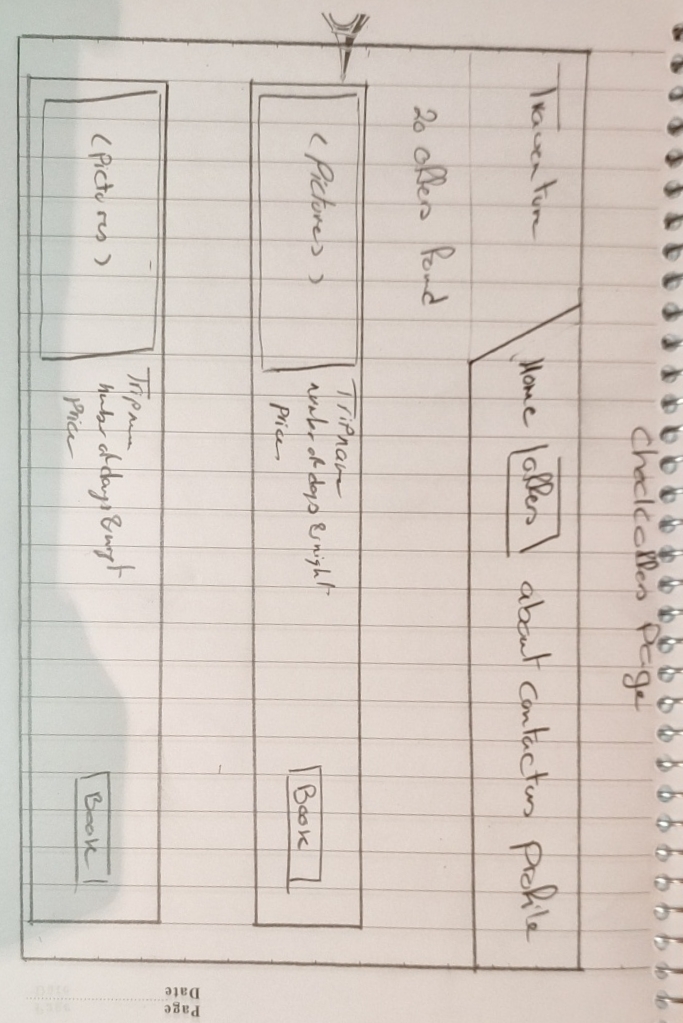 Check offers page
Traventure Home offers about contact us profile
20 offers found
<Pictures>
Trip name
number of days & night
price
Book
<pictures>
Trip name
number of days & night
price
Book
Page
Date